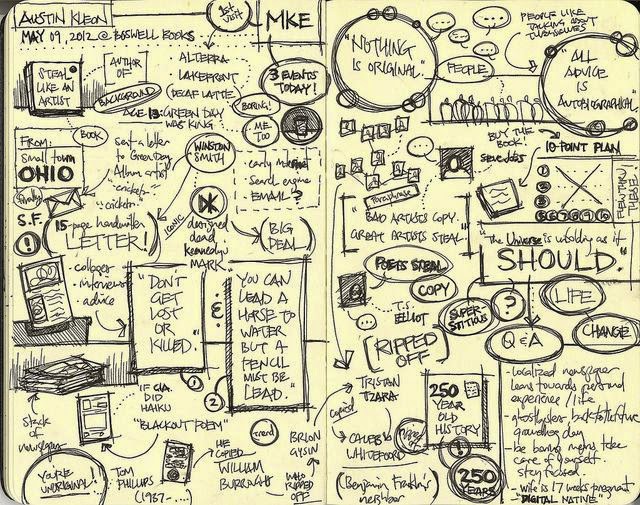 AUSTIN KLEON
MAY 09, 2012 @ BOSWELL BOOKS
1st visit
MKE
STEAL
LIKE AN
ARTIST
AUTHOR
OF
BACKGROUND
BOOK
ALTERRA
LAKEFRONT
DECAF LATTE
3 EVENTS
TODAY!
AGE 13: GREEN DAY
WAS KING
BORING!
ME
TOO
FROM:
small town
OHIO
sent a letter
to Green Day
Album artist
"crickets"
"crickets"
WINSTON
SMITH
- early
- Search engine
- EMAIL?
(Finally)
S.F.
!
15-page handwritten
LETTER!
ICONIC
DK
designed
dead
Kennedy's
MARK
BIG
DEAL
- collages
- interviews
- advice
"DON'T
GET
LOST
OR
KILLED."
&
1
2
"YOU CAN
LEAD A
HORSE TO
WATER
BUT A
PENCIL
MUST BE
LEAD."
stack
of
newspaper
IF CIA
DID
HAIKU
"BLACKOUT POEM"
YOU'RE
UNORIGINAL!
TOM
PHILLIPS
(1937-....)
HE
COPIED
WILLIAM
BURROUGHS
trend
BRION
GYSIN
WHO
RIPPED
OFF
"NOTHING
IS ORIGINAL"
PEOPLE LIKE
TALKING ABOUT
THEMSELVES
PEOPLE
"ALL
ADVICE
IS
AUTOBIOGRAPHICAL"
BUY THE
BOOK!
10-POINT PLAN
steve jobs
1
2
3
4
5
6 7 8 9 10
FLEW THRU
THESE!
Paraphrase
"BAD ARTISTS COPY.
GREAT ARTISTS STEAL."
"The Universe is unfolding as it
SHOULD."
POETS STEAL
COPY
T.S.
ELLIOT
SUPER
STITIONS
?
LIFE
Q & A
CHANGE
[RIPPED
OFF]
TRISTAN
TZARA
copied
CALEB
WHITEFOORD
(Benjamin Franklin's
neighbor)
250
YEAR
OLD
HISTORY
!
250
YEARS
- localized newspaper
leans towards personal
experience/life
- ghostbusters back to the future
groundhog day
- be boring means take
care of yourself.
stay focused.
- wife is 17 weeks pregnant
"DIGITAL NATIVE"